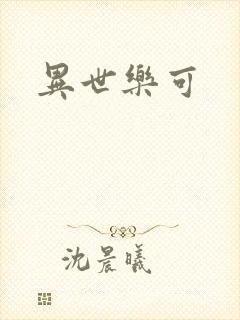 異世樂可
沈晨曦